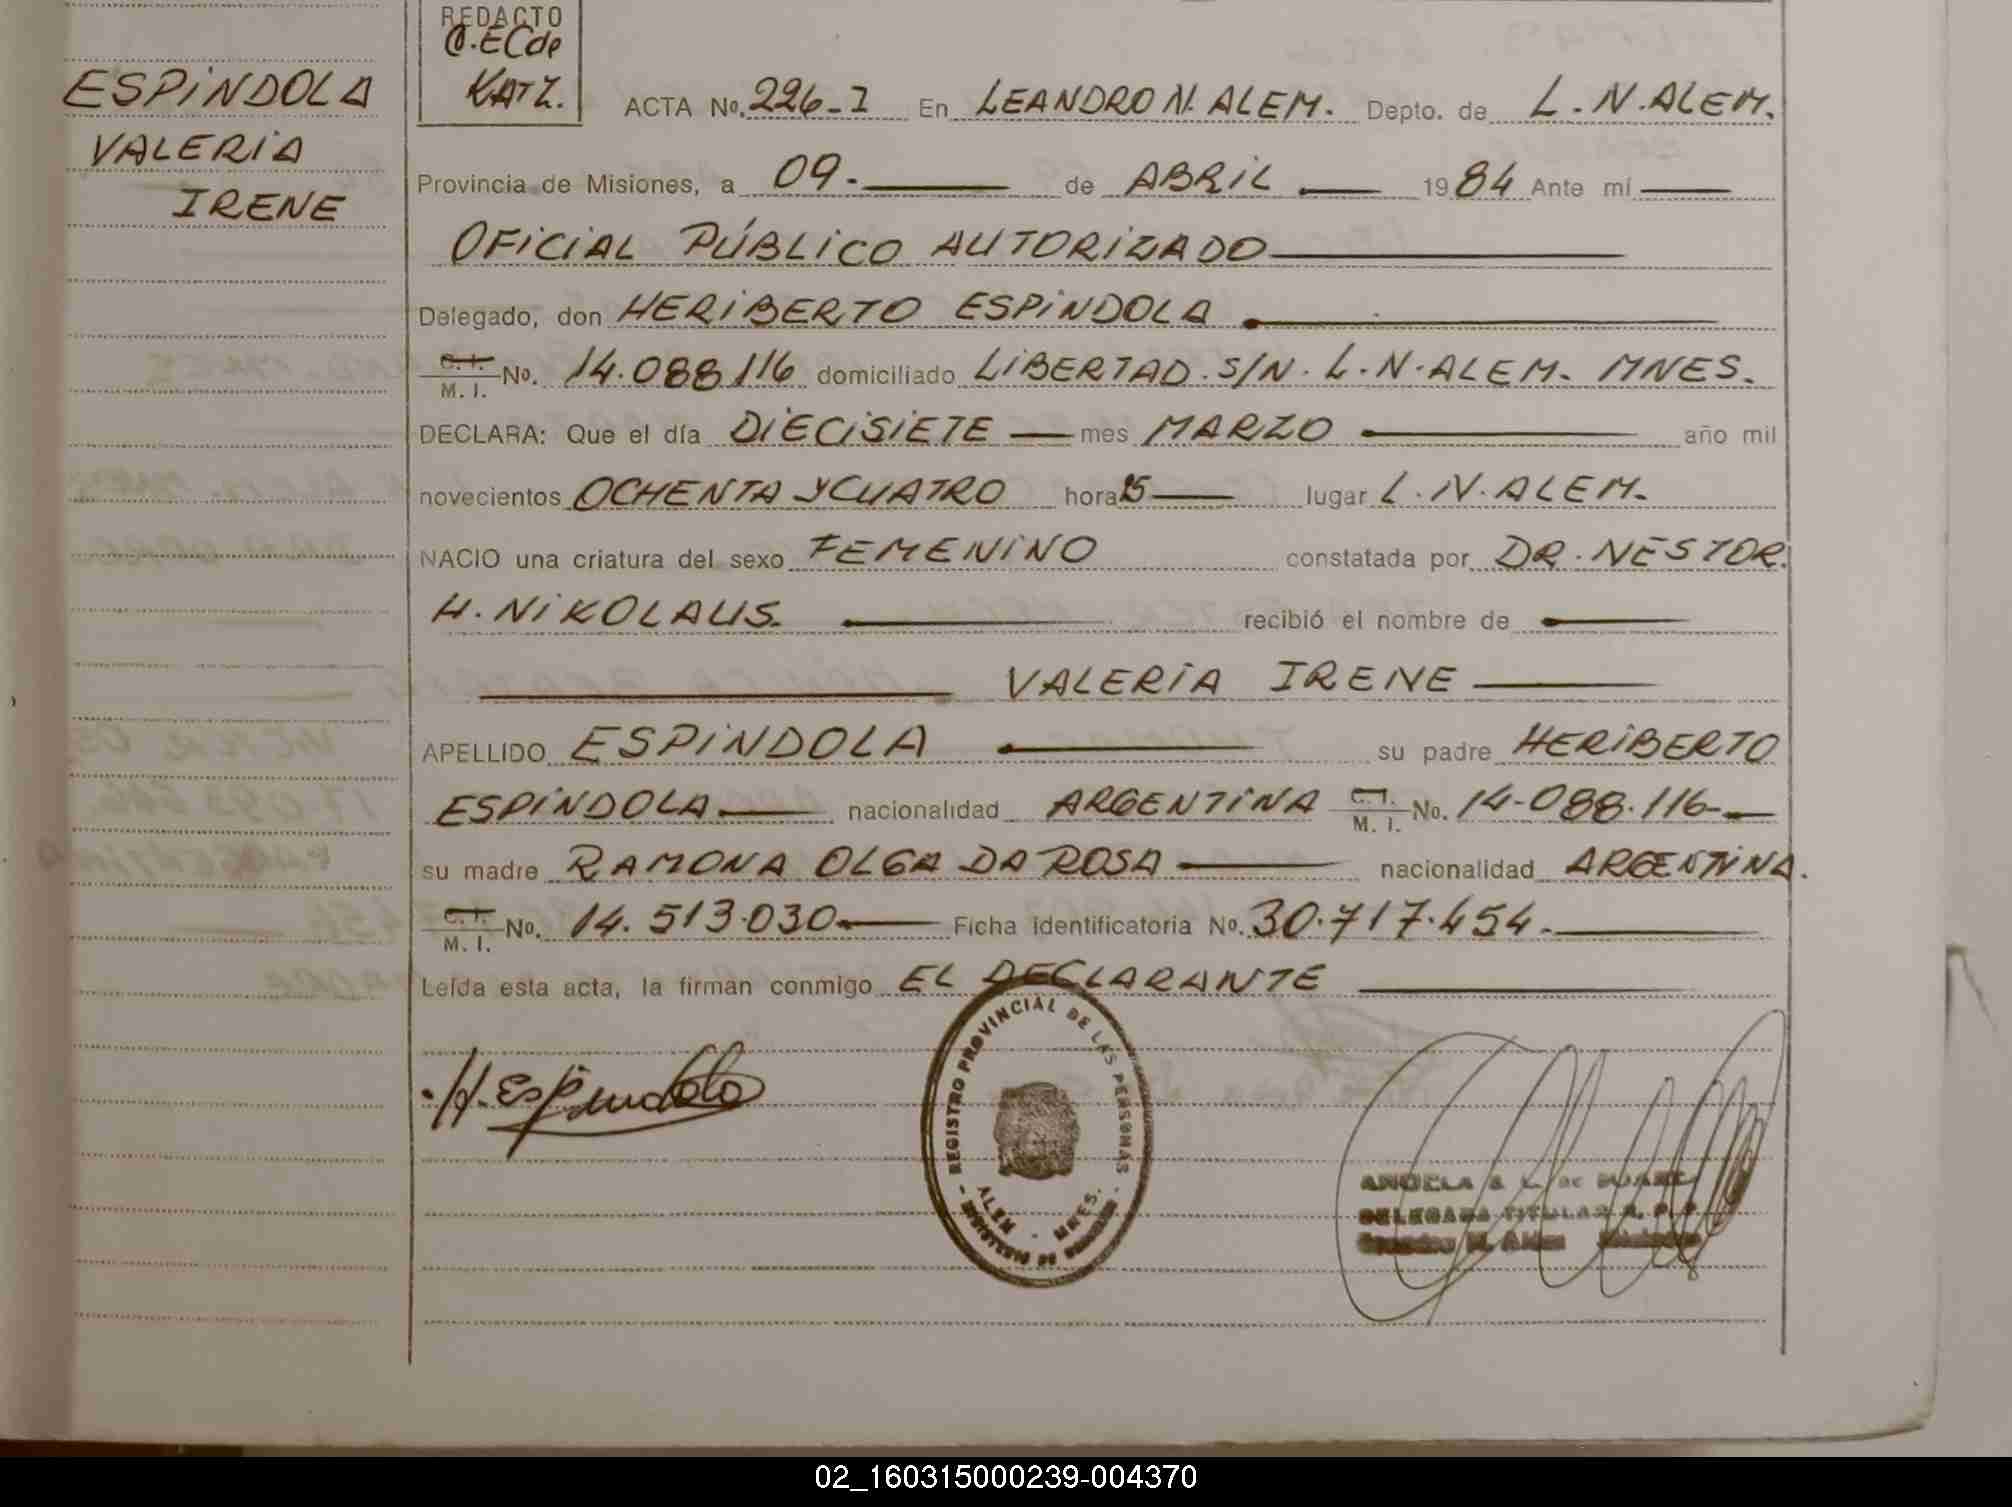 REDACTO
O.ECde
KATZ.
ESPÍNDOLA
VALERIA
IRENE
ACTA No. 226-I En LEANDRO N. ALEM. Depto. de L.N.ALEM.
Provincia de Misiones, a 09. de ABRIL 1984 Ante mí
OFICIAL PÚBLICO AUTORIZADO
Delegado, don HERIBERTO ESPINDOLA
C.I. M.I. No. 14.088.116 domiciliado LIBERTAD. S/N. L.N.ALEM. MNES.
DECLARA: Que el día DIECISIETE mes MARZO año mil
novecientos OCHENTA Y CUATRO hora lugar L.N.ALEM.
NACIO una criatura del sexo FEMENINO constatada por DR. NESTOR.
H. NIKOLAUS. recibió el nombre de
VALERIA IRENE
APELLIDO ESPINDOLA su padre HERIBERTO
ESPÍNDOLA nacionalidad ARGENTINA C.I. M.I. No. 14-088.116
su madre RAMONA OLGA DA ROSA nacionalidad ARGENTINA.
C.I. M.I. No. 14.513.030 Ficha identificatoria No. 30.717.454.
Leída esta acta, la firman conmigo EL DECLARANTE
H. Espindola
REGISTRO PROVINCIAL DE LAS PERSONAS
ALEM - MNES.
MINISTERIO DE
ANGELA
DELEGADA TITULAR R. P. P.
Leandro N. Alem Misiones
02_160315000239-004370